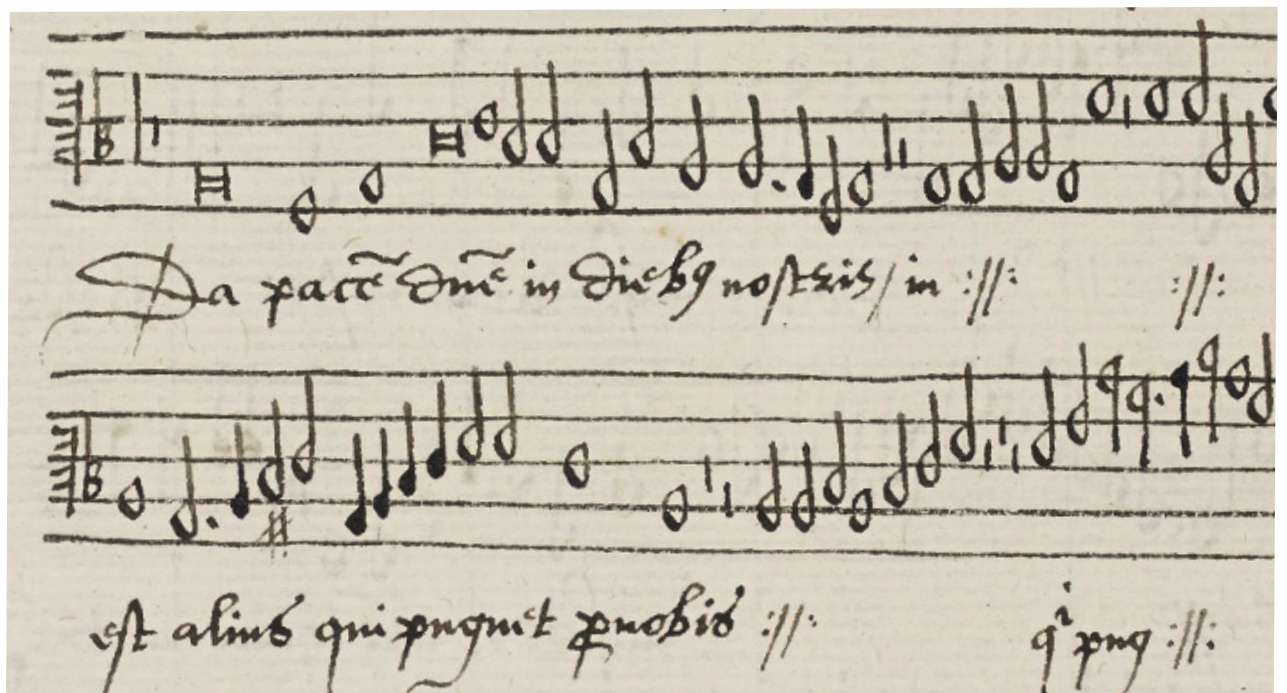 Da pacē dn̄e in dieb9 nostris / in :||: :||:
est alius qui pugnet ꝓ nobis :||: qͥ pug :||: